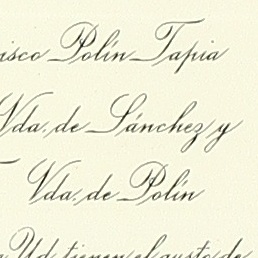 isco Polín Tapia
Vda. de Sánchez y
Vda. de Polín
Ud. tienen el gusto de